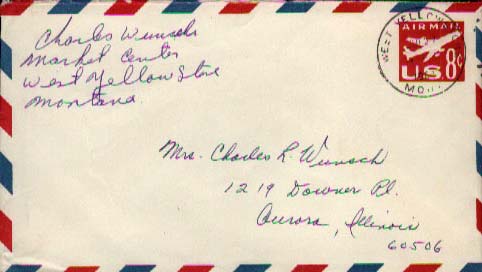 Charles Wunsch
Market Center
West Yellow Stone
Montana.
WEST YELLOW
MON
AIR MAIL
US 8¢
Mrs. Charles L. Wunsch
1219 Downer Pl.
Aurora, Illinois
60506